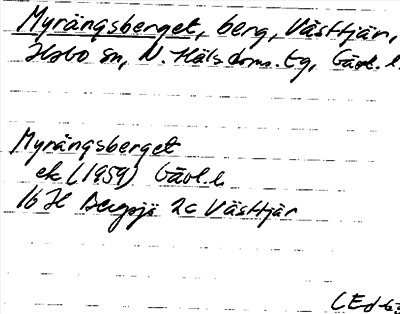 Myrängsberget, berg, Västtjär,
Ilsbo sn, N. Häls doms. tg, Gävl. l.
Myrängsberget
ek (1959) Gävl. l.
16 H Bergsjö 2c Västtjär